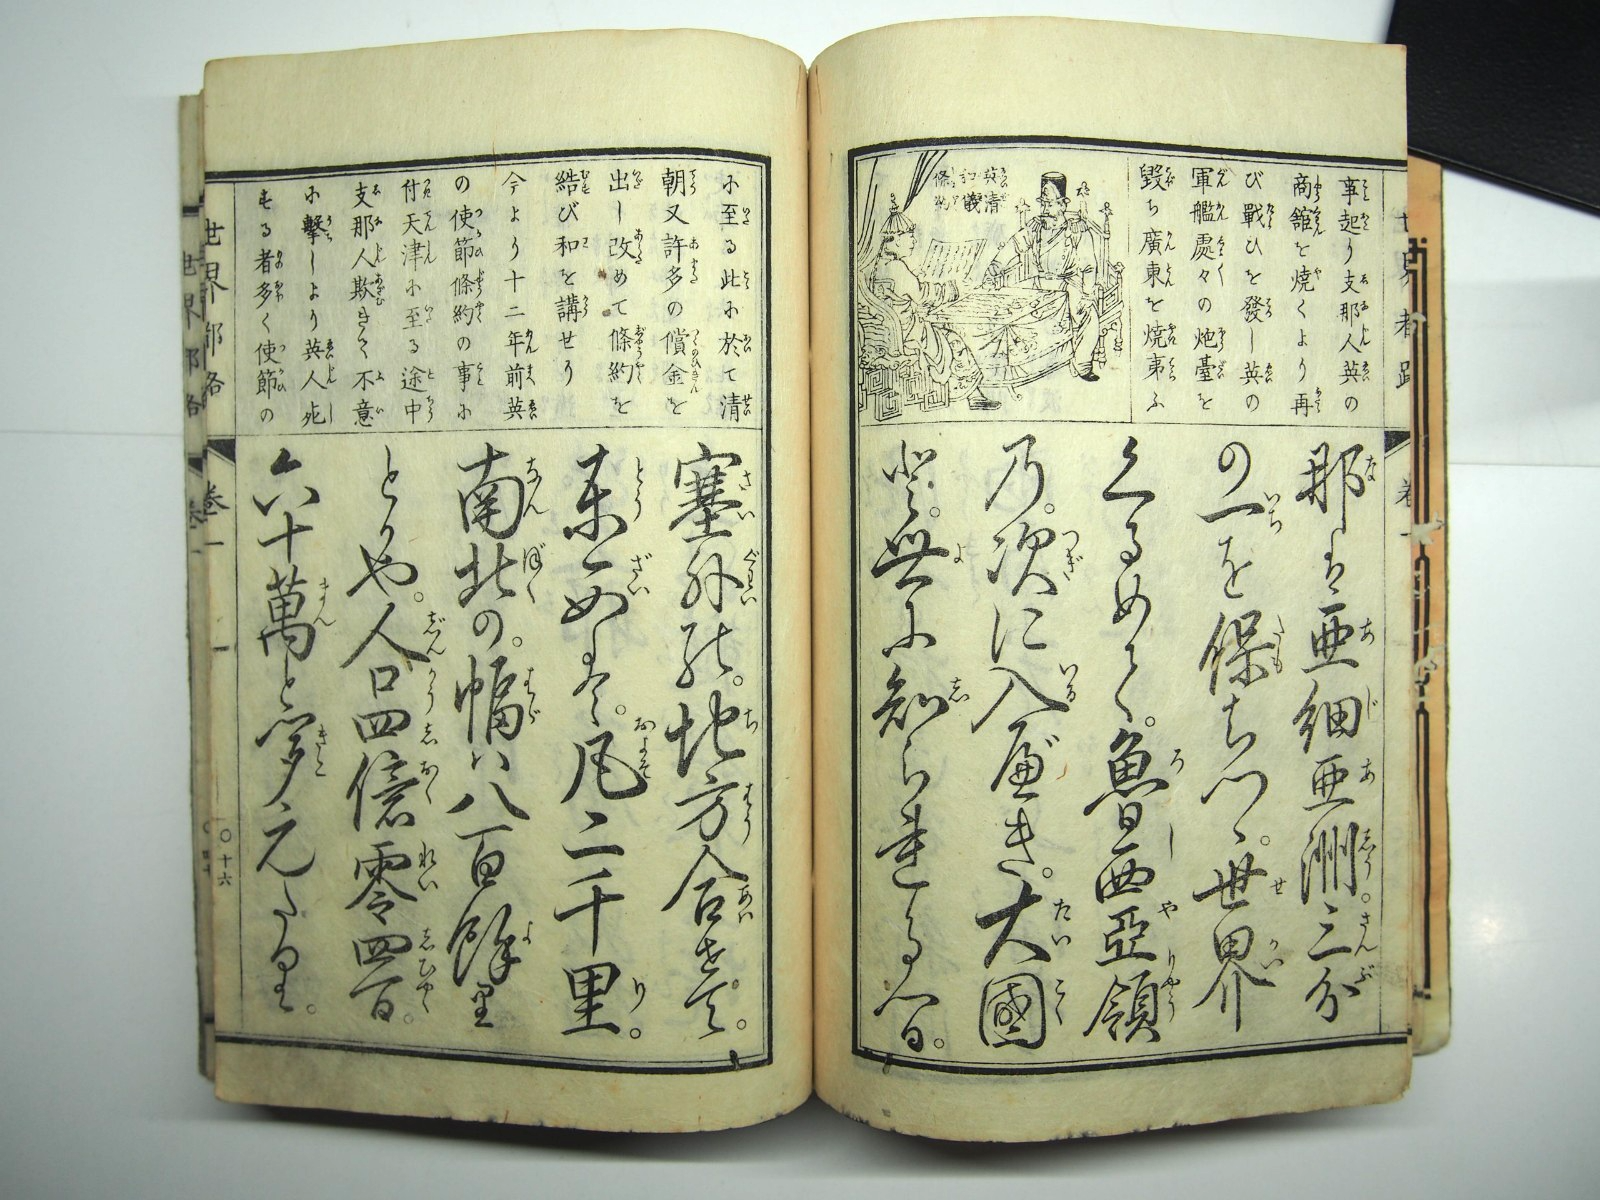 事起り支那人英の
商舘を焼くより再
び戰ひを發し英の
軍艦處々の炮臺を
毀ち廣東を焼事ふ
英清
和議
條約
那は亜細亜洲三分
の一を保ちつゝ。世界
くるめて。魯西亞領
乃。次に入べき。大國
と。世に知られたる
世界都路
巻一
に至る此に於て清
朝又許多の償金を
出し改めて條約を
結び和を講せり
今より十二年前英
の使節條約の事に
付天津に至る途中
支那人欺きて不意
に擊しより英人死
する者多く使節の
塞外の。地方合せて。
東西は。凡二千里。
南北の。幅は八百餘里
とかや。人口四億零四百。
六十萬と聞えたり。
世界都路
巻一
〇十六